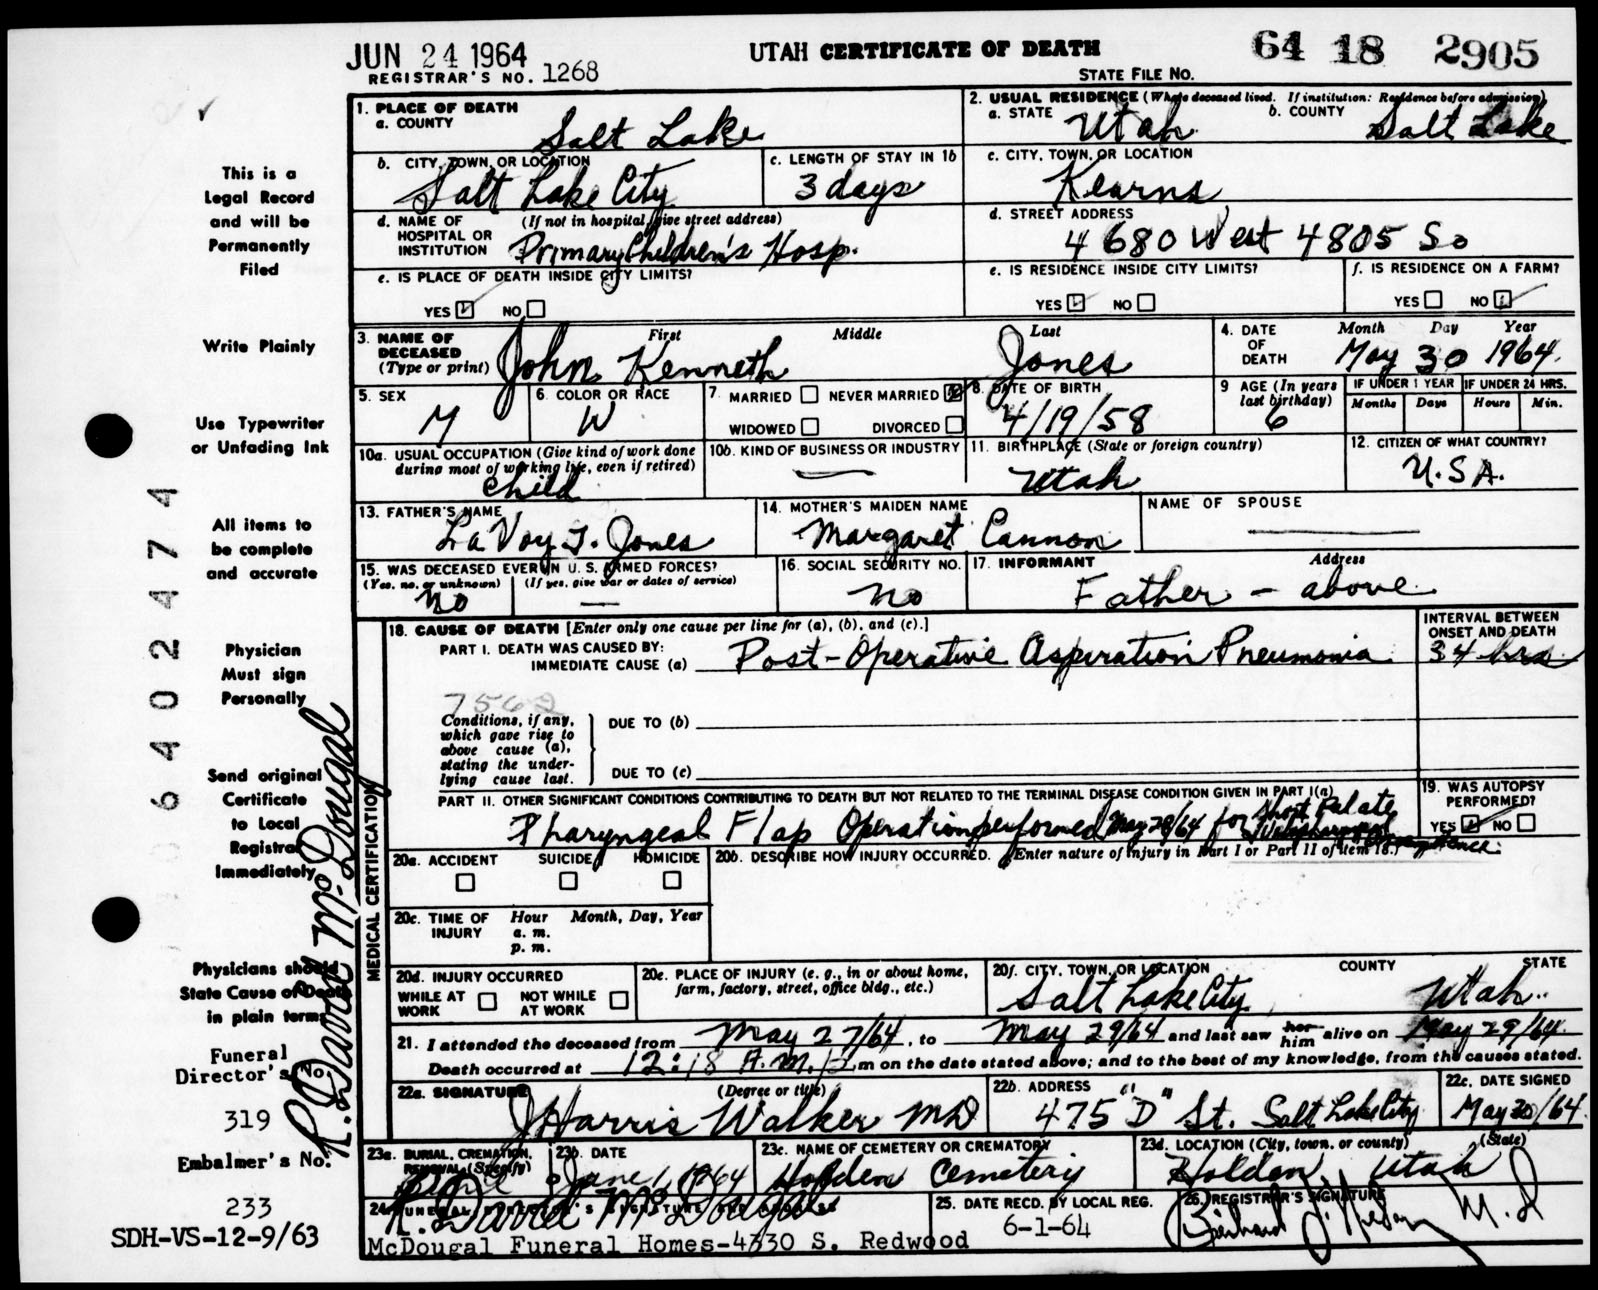 JUN 24 1964
UTAH CERTIFICATE OF DEATH
64 18 2905
REGISTRAR'S NO. 1268
STATE FILE NO.
This is a
Legal Record
and will be
Permanently
Filed
Write Plainly
Use Typewriter
or Unfading Ink
All items to
be complete
and accurate
Physician
Must sign
Personally
Send original
Certificate
to Local
Registrar
Immediately
Physicians should
State Cause of Death
in plain terms
Funeral
Director's No.
319
Embalmer's No.
233
SDH-VS-12-9/63
6402474
R. David McDougal
1. PLACE OF DEATH
a. COUNTY Salt Lake
2. USUAL RESIDENCE (Where deceased lived. If institution: Residence before admission)
a. STATE Utah b. COUNTY Salt Lake
b. CITY, TOWN, OR LOCATION Salt Lake City
c. LENGTH OF STAY IN 1b 3 days
c. CITY, TOWN, OR LOCATION Kearns
d. NAME OF HOSPITAL OR INSTITUTION (If not in hospital, give street address) Primary Children's Hosp.
d. STREET ADDRESS 4680 West 4805 So
e. IS PLACE OF DEATH INSIDE CITY LIMITS?
YES NO
e. IS RESIDENCE INSIDE CITY LIMITS?
YES NO
f. IS RESIDENCE ON A FARM?
YES NO
3. NAME OF DECEASED (Type or print) First Middle Last
John Kenneth Jones
4. DATE OF DEATH Month Day Year
May 30 1964.
5. SEX M
6. COLOR OR RACE W
7. MARRIED NEVER MARRIED
WIDOWED DIVORCED
8. DATE OF BIRTH 4/19/58
9 AGE (In years last birthday) 6
IF UNDER 1 YEAR Months Days
IF UNDER 24 HRS. Hours Min.
10a. USUAL OCCUPATION (Give kind of work done during most of working life, even if retired) Child
10b. KIND OF BUSINESS OR INDUSTRY —
11. BIRTHPLACE (State or foreign country) Utah
12. CITIZEN OF WHAT COUNTRY? U.S.A.
13. FATHER'S NAME LaVoy T. Jones
14. MOTHER'S MAIDEN NAME Margaret Cannon
NAME OF SPOUSE —
15. WAS DECEASED EVER IN U. S. ARMED FORCES?
(Yes, no, or unknown) (If yes, give war or dates of service)
No —
16. SOCIAL SECURITY NO. No
17. INFORMANT Address
Father - above
MEDICAL CERTIFICATION
18. CAUSE OF DEATH [Enter only one cause per line for (a), (b), and (c).]
INTERVAL BETWEEN ONSET AND DEATH
PART I. DEATH WAS CAUSED BY:
IMMEDIATE CAUSE (a) Post-Operative Aspiration Pneumonia 34 hrs
7562
Conditions, if any, which gave rise to above cause (a), stating the underlying cause last.
DUE TO (b)
DUE TO (c)
PART II. OTHER SIGNIFICANT CONDITIONS CONTRIBUTING TO DEATH BUT NOT RELATED TO THE TERMINAL DISEASE CONDITION GIVEN IN PART I(a)
Pharyngeal Flap Operation performed May 28/64 for Short Palate
19. WAS AUTOPSY PERFORMED?
YES NO
20a. ACCIDENT SUICIDE HOMICIDE
20b. DESCRIBE HOW INJURY OCCURRED. (Enter nature of injury in Part I or Part II of item 18.)
20c. TIME OF INJURY Hour Month, Day, Year
a. m.
p. m.
20d. INJURY OCCURRED
WHILE AT WORK NOT WHILE AT WORK
20e. PLACE OF INJURY (e. g., in or about home, farm, factory, street, office bldg., etc.)
20f. CITY, TOWN, OR LOCATION COUNTY STATE
Salt Lake City Utah.
21. I attended the deceased from May 27/64, to May 29/64 and last saw her him alive on May 29/64.
Death occurred at 12:18 A.M. m on the date stated above; and to the best of my knowledge, from the causes stated.
22a. SIGNATURE (Degree or title)
J Harris Walker MD
22b. ADDRESS 475 "D" St. Salt Lake City
22c. DATE SIGNED May 30/64
23a. BURIAL, CREMATION, REMOVAL (Specify) Burial
23b. DATE June 1, 1964
23c. NAME OF CEMETERY OR CREMATORY Holden Cemetery
23d. LOCATION (City, town, or county) (State)
Holden Utah
24. FUNERAL DIRECTOR'S SIGNATURE AND ADDRESS
R. David McDougal
McDougal Funeral Homes-4330 S. Redwood
25. DATE RECD. BY LOCAL REG.
6-1-64
26. REGISTRAR'S SIGNATURE
M.D